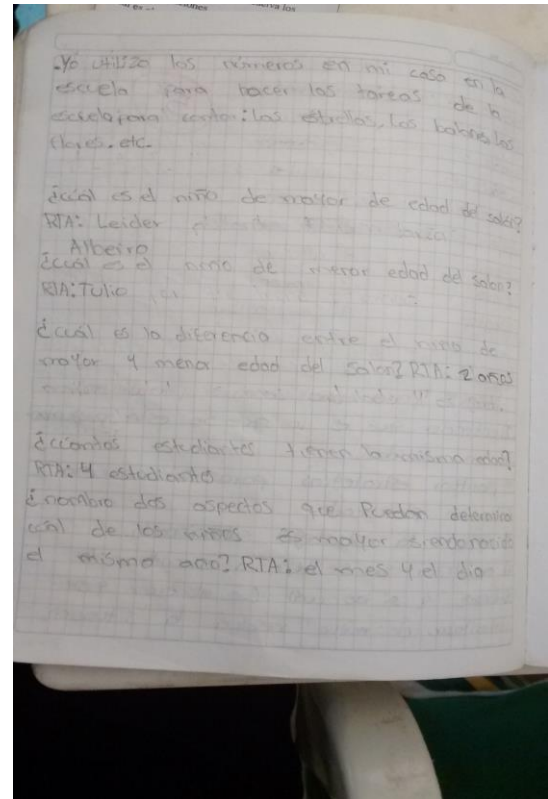 .Yo utilizo los números en mi caso en la
escuela para hacer las tareas de la
escuela para contar: las estrellas, los balones, las
flores. etc.
¿cuál es el niño de mayor de edad del salón?
RTA: Leider
Alberto
¿cuál es el niño de menor edad del salon?
RTA: Tulio
¿cuál es la diferencia entre el niño de
mayor y menor edad del salon? RTA: 2 años
¿cuantos estudiantes tienen la misma edad?
RTA: 4 estudiantes
¿nombro dos aspectos que Puedan
cuál de los niños es mayor siendo nacido
el mismo año? RTA: el mes y el dia